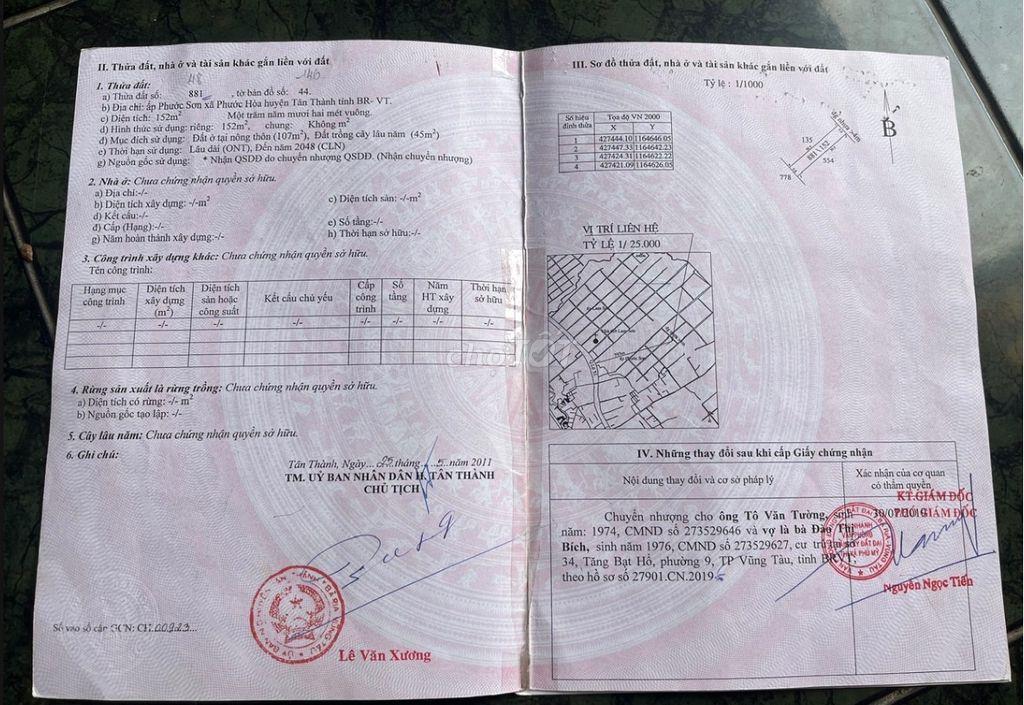 II. Thửa đất, nhà ở và tài sản khác gắn liền với đất
1. Thửa đất: 48 146
a) Thửa đất số: 881, tờ bản đồ số: 44.
b) Địa chỉ: ấp Phước Sơn xã Phước Hòa huyện Tân Thành tỉnh BR- VT.
c) Diện tích: 152m² Một trăm năm mươi hai mét vuông.
d) Hình thức sử dụng: riêng: 152m², chung: Không m²
đ) Mục đích sử dụng: Đất ở tại nông thôn (107m²), Đất trồng cây lâu năm (45m²)
e) Thời hạn sử dụng: Lâu dài (ONT), Đến năm 2048 (CLN)
g) Nguồn gốc sử dụng: * Nhận QSDĐ do chuyển nhượng QSDĐ. (Nhận chuyển nhượng)
2. Nhà ở: Chưa chứng nhận quyền sở hữu.
a) Địa chỉ:-/-
b) Diện tích xây dựng: -/-m² c) Diện tích sàn: -/-m²
d) Kết cấu:-/-
đ) Cấp (Hạng):-/- e) Số tầng:-/-
g) Năm hoàn thành xây dựng:-/- h) Thời hạn sở hữu:-/-
3. Công trình xây dựng khác: Chưa chứng nhận quyền sở hữu.
Tên công trình:
Hạng mục công trình Diện tích xây dựng (m²) Diện tích sàn hoặc công suất Kết cấu chủ yếu Cấp công trình Số tầng Năm HT xây dựng Thời hạn sở hữu
-/- -/- -/- -/- -/- -/- -/- -/-
4. Rừng sản xuất là rừng trồng: Chưa chứng nhận quyền sở hữu.
a) Diện tích có rừng: -/- m²
b) Nguồn gốc tạo lập: -/-
5. Cây lâu năm: Chưa chứng nhận quyền sở hữu.
6. Ghi chú:
Tân Thành, Ngày...25.tháng...5..năm 2011
TM. UỶ BAN NHÂN DÂN H. TÂN THÀNH
CHỦ TỊCH
Lê Văn Xương
Số vào sổ cấp GCN: CH.00923...
III. Sơ đồ thửa đất, nhà ở và tài sản khác gắn liền với đất
Tỷ lệ : 1/1000
B
Số hiệu đỉnh thửa Tọa độ VN 2000
X Y
1 427444.10 1164646.05
2 427447.33 1164642.23
3 427424.31 1164622.22
4 427421.09 1164626.05
135
881/152
554
778
VỊ TRÍ LIÊN HỆ
TỶ LỆ 1/ 25.000
chợTỐT
IV. Những thay đổi sau khi cấp Giấy chứng nhận
Nội dung thay đổi và cơ sở pháp lý
Xác nhận của cơ quan có thẩm quyền
Chuyển nhượng cho ông Tô Văn Tường, sinh
năm: 1974, CMND số 273529646 và vợ là bà Đào Thị
Bích, sinh năm 1976, CMND số 273529627, cư trú tại số
34, Tăng Bạt Hổ, phường 9, TP Vũng Tàu, tỉnh BRVT,
theo hồ sơ số 27901.CN.2019
KT.GIÁM ĐỐC
30/07/2019
PHÓ GIÁM ĐỐC
Nguyễn Ngọc Tiến